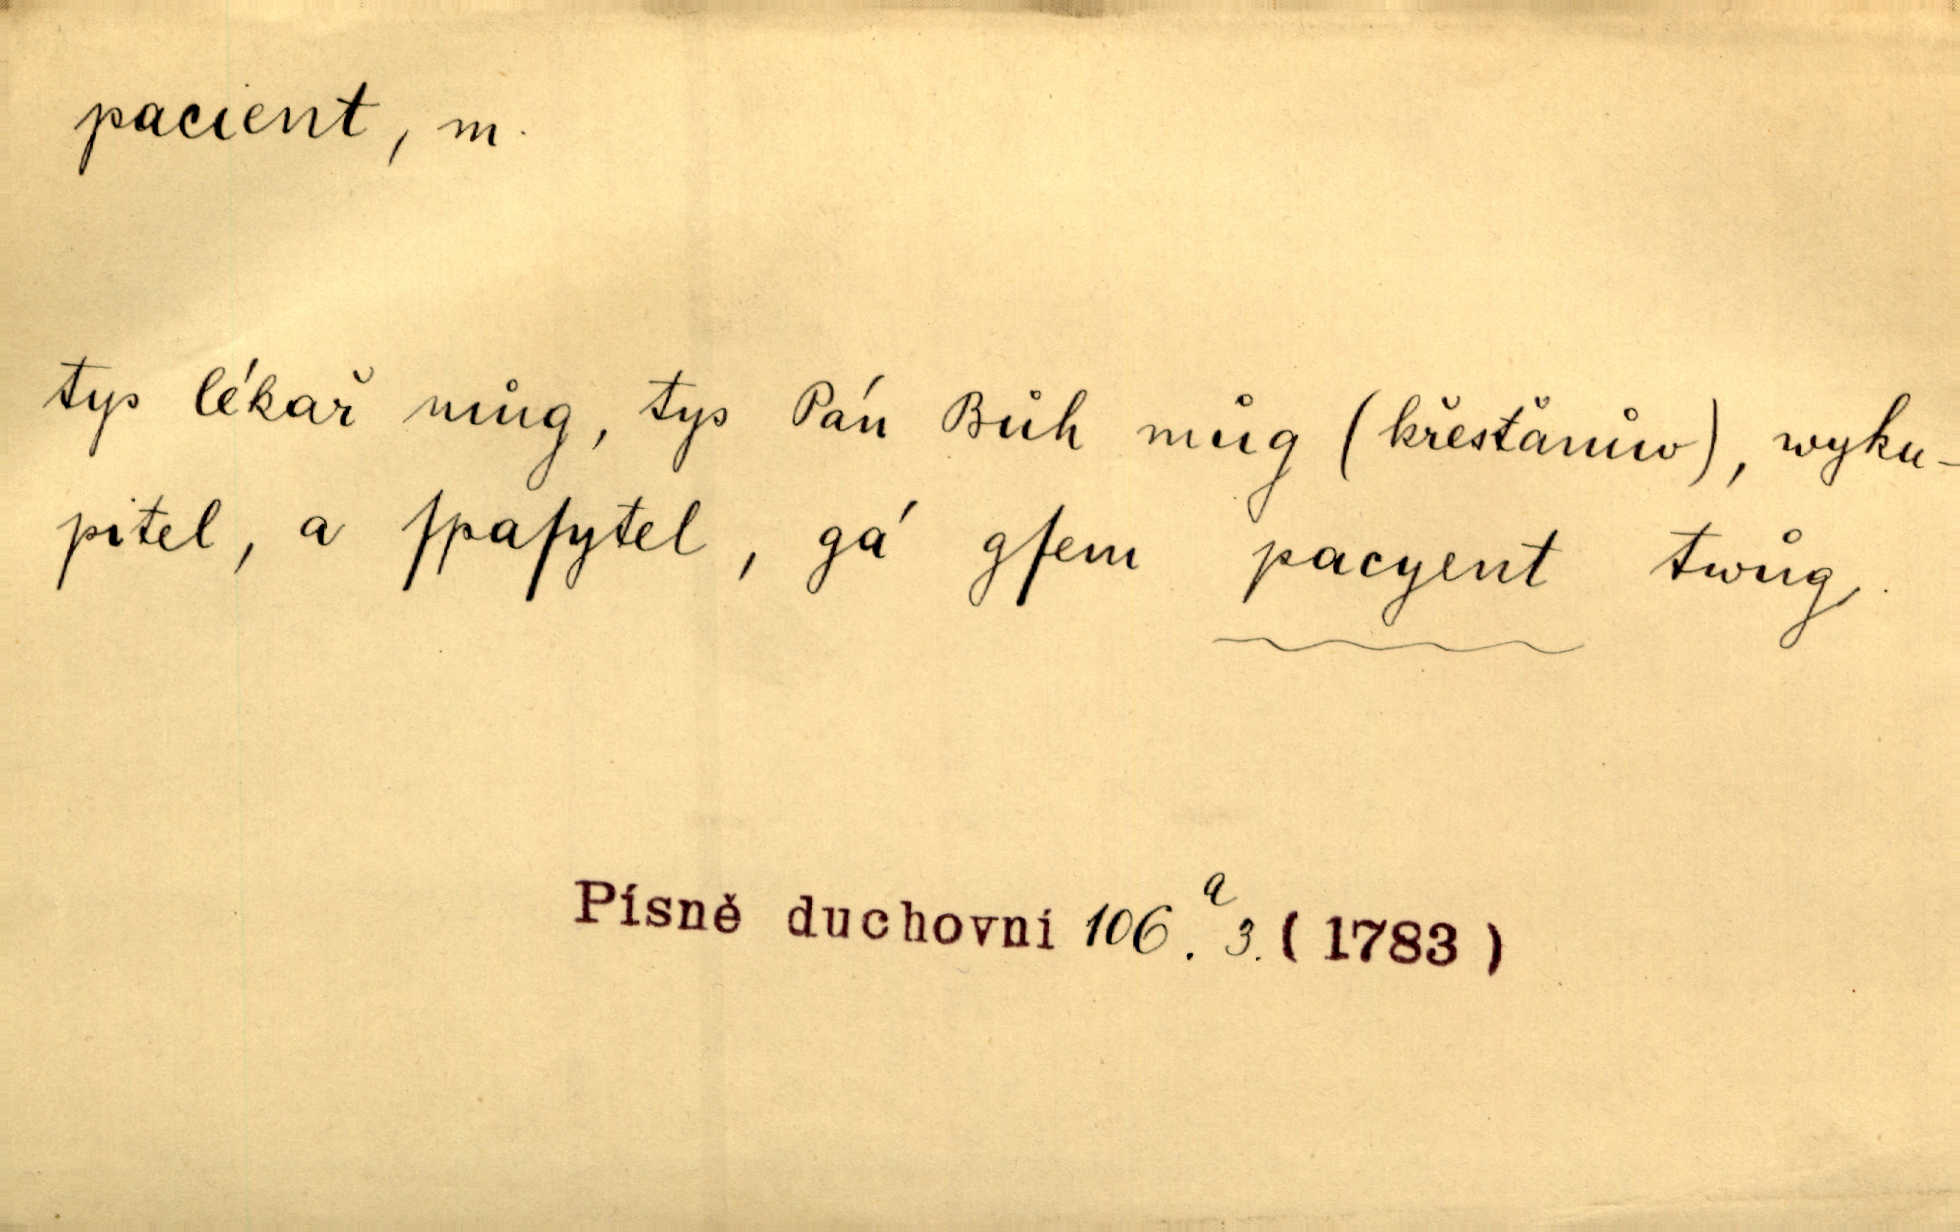 pacient, m.
tys lékař můg, tys Pán Bůh můg (křestǎnůw), wyku-
pitel, a ſpaſytel, gá gſem pacyent twůg.
Písně duchovní 106.ª 3. (1783)